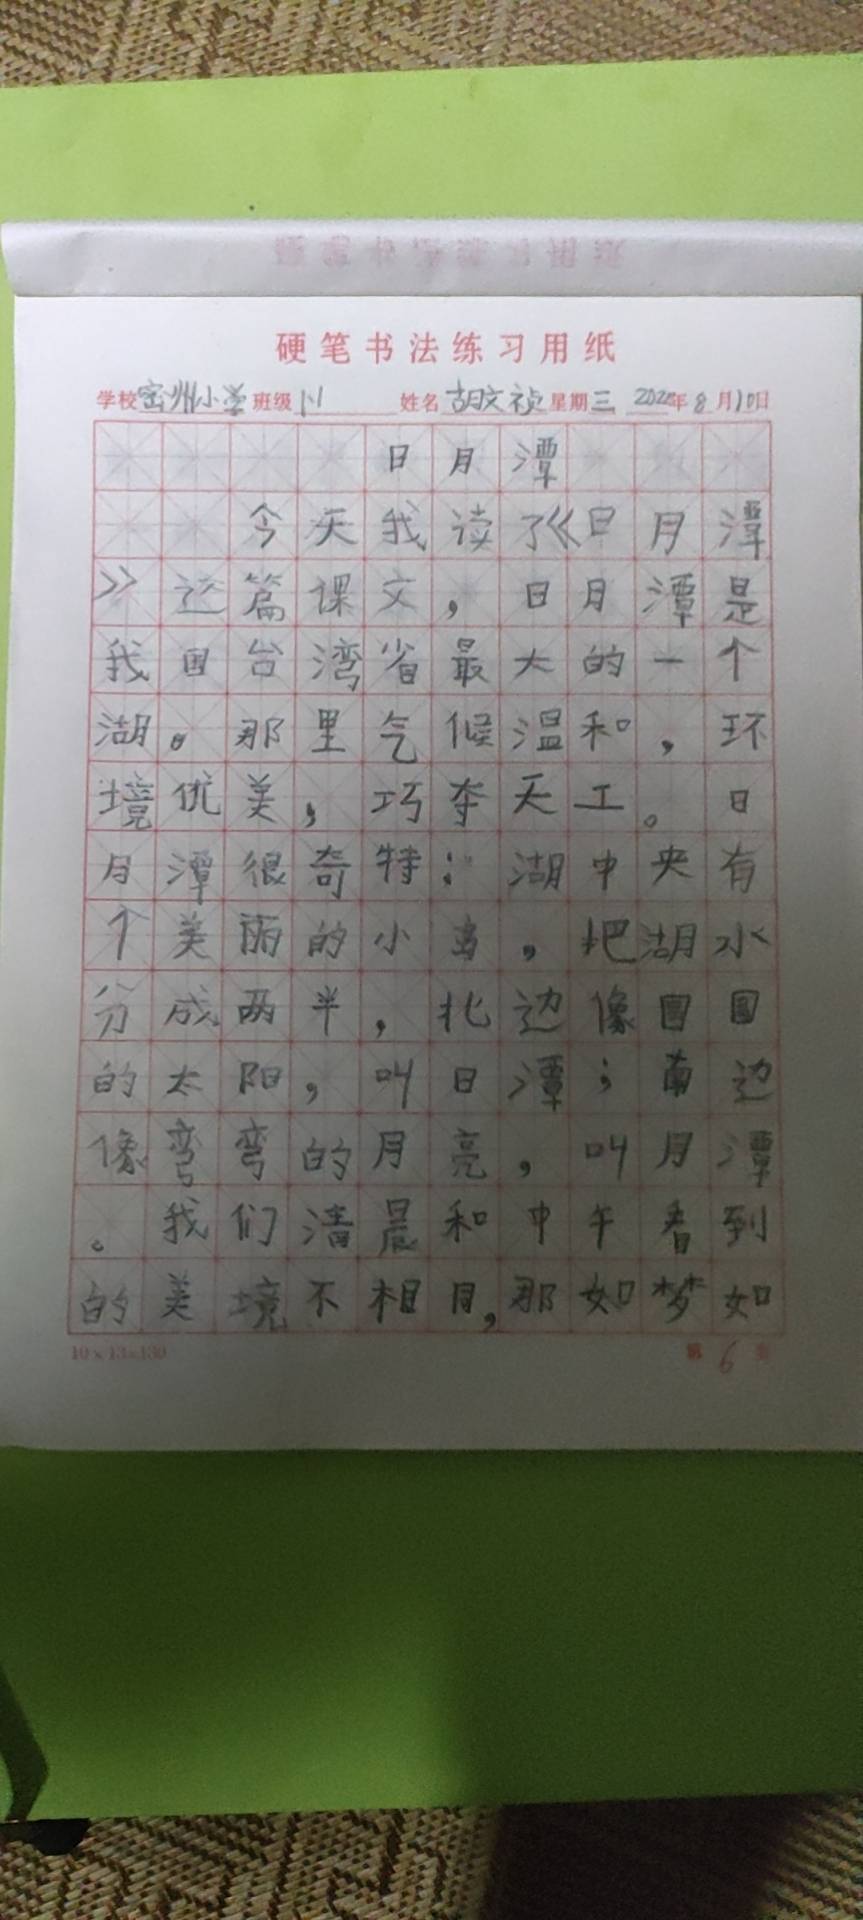 硬笔书法练习用纸
学校密州小学班级1.1 姓名胡文祯星期三 2022年8月10日
日月潭
今天我读了《日月潭
》这篇课文,日月潭是
我国台湾省最大的一个
湖。那里气候温和,环
境优美,巧夺天工。日
月潭很奇特:湖中央有
个美丽的小岛,把湖水
分成两半,北边像圆圆
的太阳,叫日潭;南边
像弯弯的月亮,叫月潭
。我们清晨和中午看到
的美境不相同,那如梦如
10×13=130 第6页